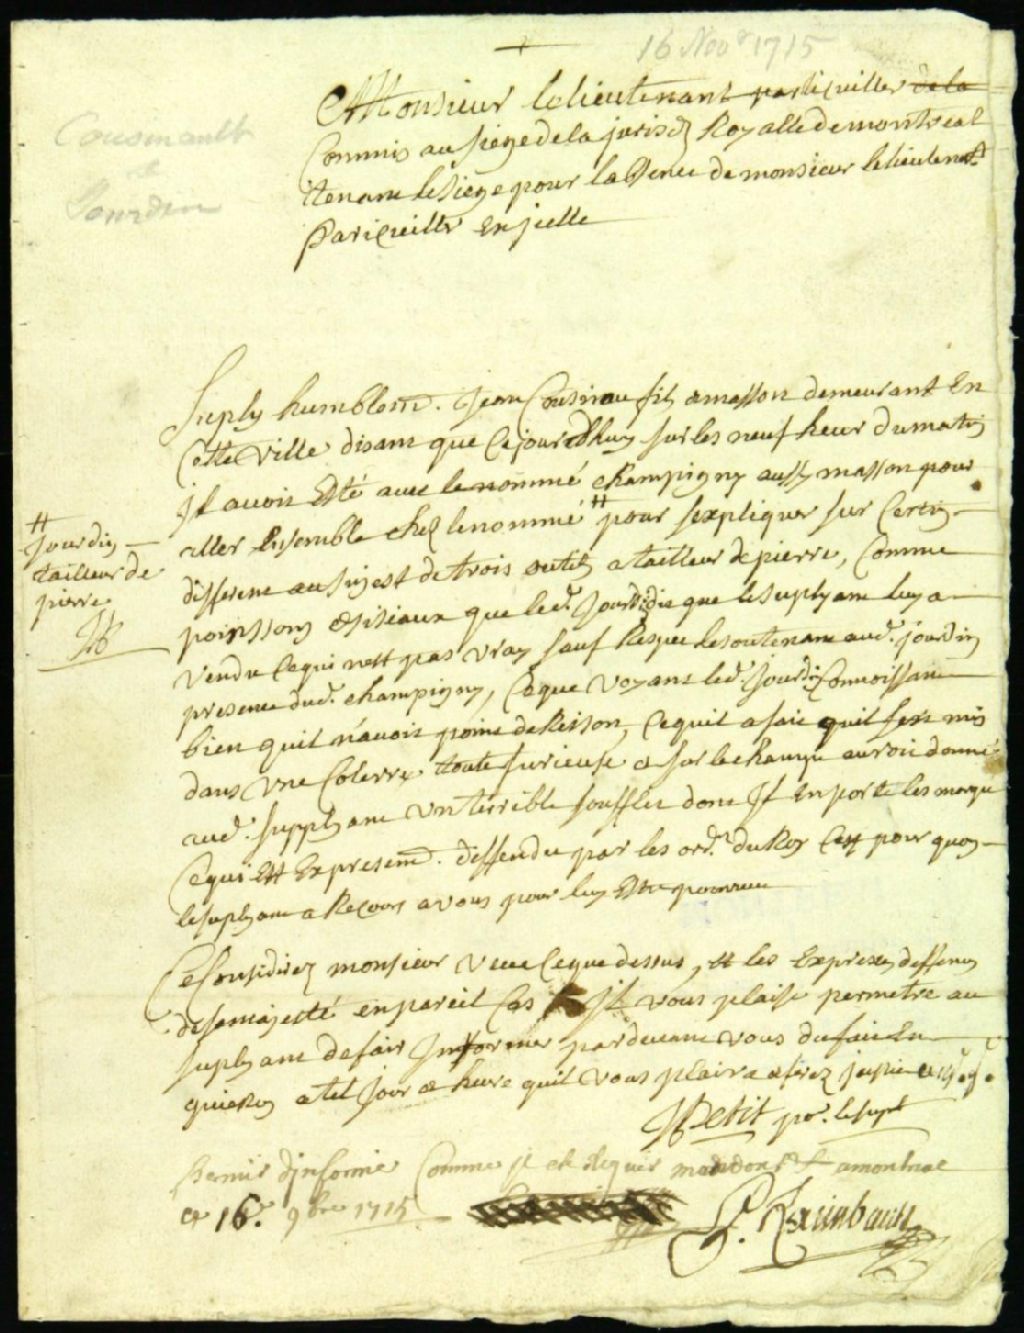 16 Nov.e 1715
Cousinault
&
Jourdin
A Monsieur le lieutenant particuiller de la
Commis au siege de la jurisd. Royalle de montreal
tenant le siege pour la de monsieur le lieutenat.
Paricuiller En jcelle
Suply humblemt. Jean Cousinau fils masson demeurant En
Cette Ville disant que Cejourdhuy sur les neuf heur du matin
Jl avoit Esté avec le nommé champigny aussy masson pour
aller Ensemble chez le nommé # pour sexpliquer sur Certin
differene au sujest de trois outils a tailleur de pierre, Comme
# Jourdin
tailleur de
pierre
poinssons & sisiaux que led. Jourdin dit que le suplyant luy a
vendu Ce qui nest pas vray sauf Respec le soutenant aud. jourdin
presence dud. champigny, Ce que voyant led. Jourdin Connoissant
bien quil n'avoit point de Reison, Ce quil a fait quil sest mis
dans une Colerre toute furieuse & sur le champ auroit donné
aud. Supplyant un terrible soufflet dont Jl En porte les marque
Ce qui Est Expressemt. deffendu par les ord. du Roy Cest pour quoy
le suplyant a Recours a vous pour luy Estre pourveu
Ce Considerez monsieur veue Ce que dessus, et les Expresses deffences
de sa majesté en pareil Cas Jl vous plaise permetre au
suplyant de fair Jnformer par devant vous du fait En
a tel jour & heure quil vous plaira & ferez justice
Petit por. le supt
Permis djnformer Comme jl est Requis mandons &c a montreal
Ce 16e. 9bre 1715
P. Raimbault